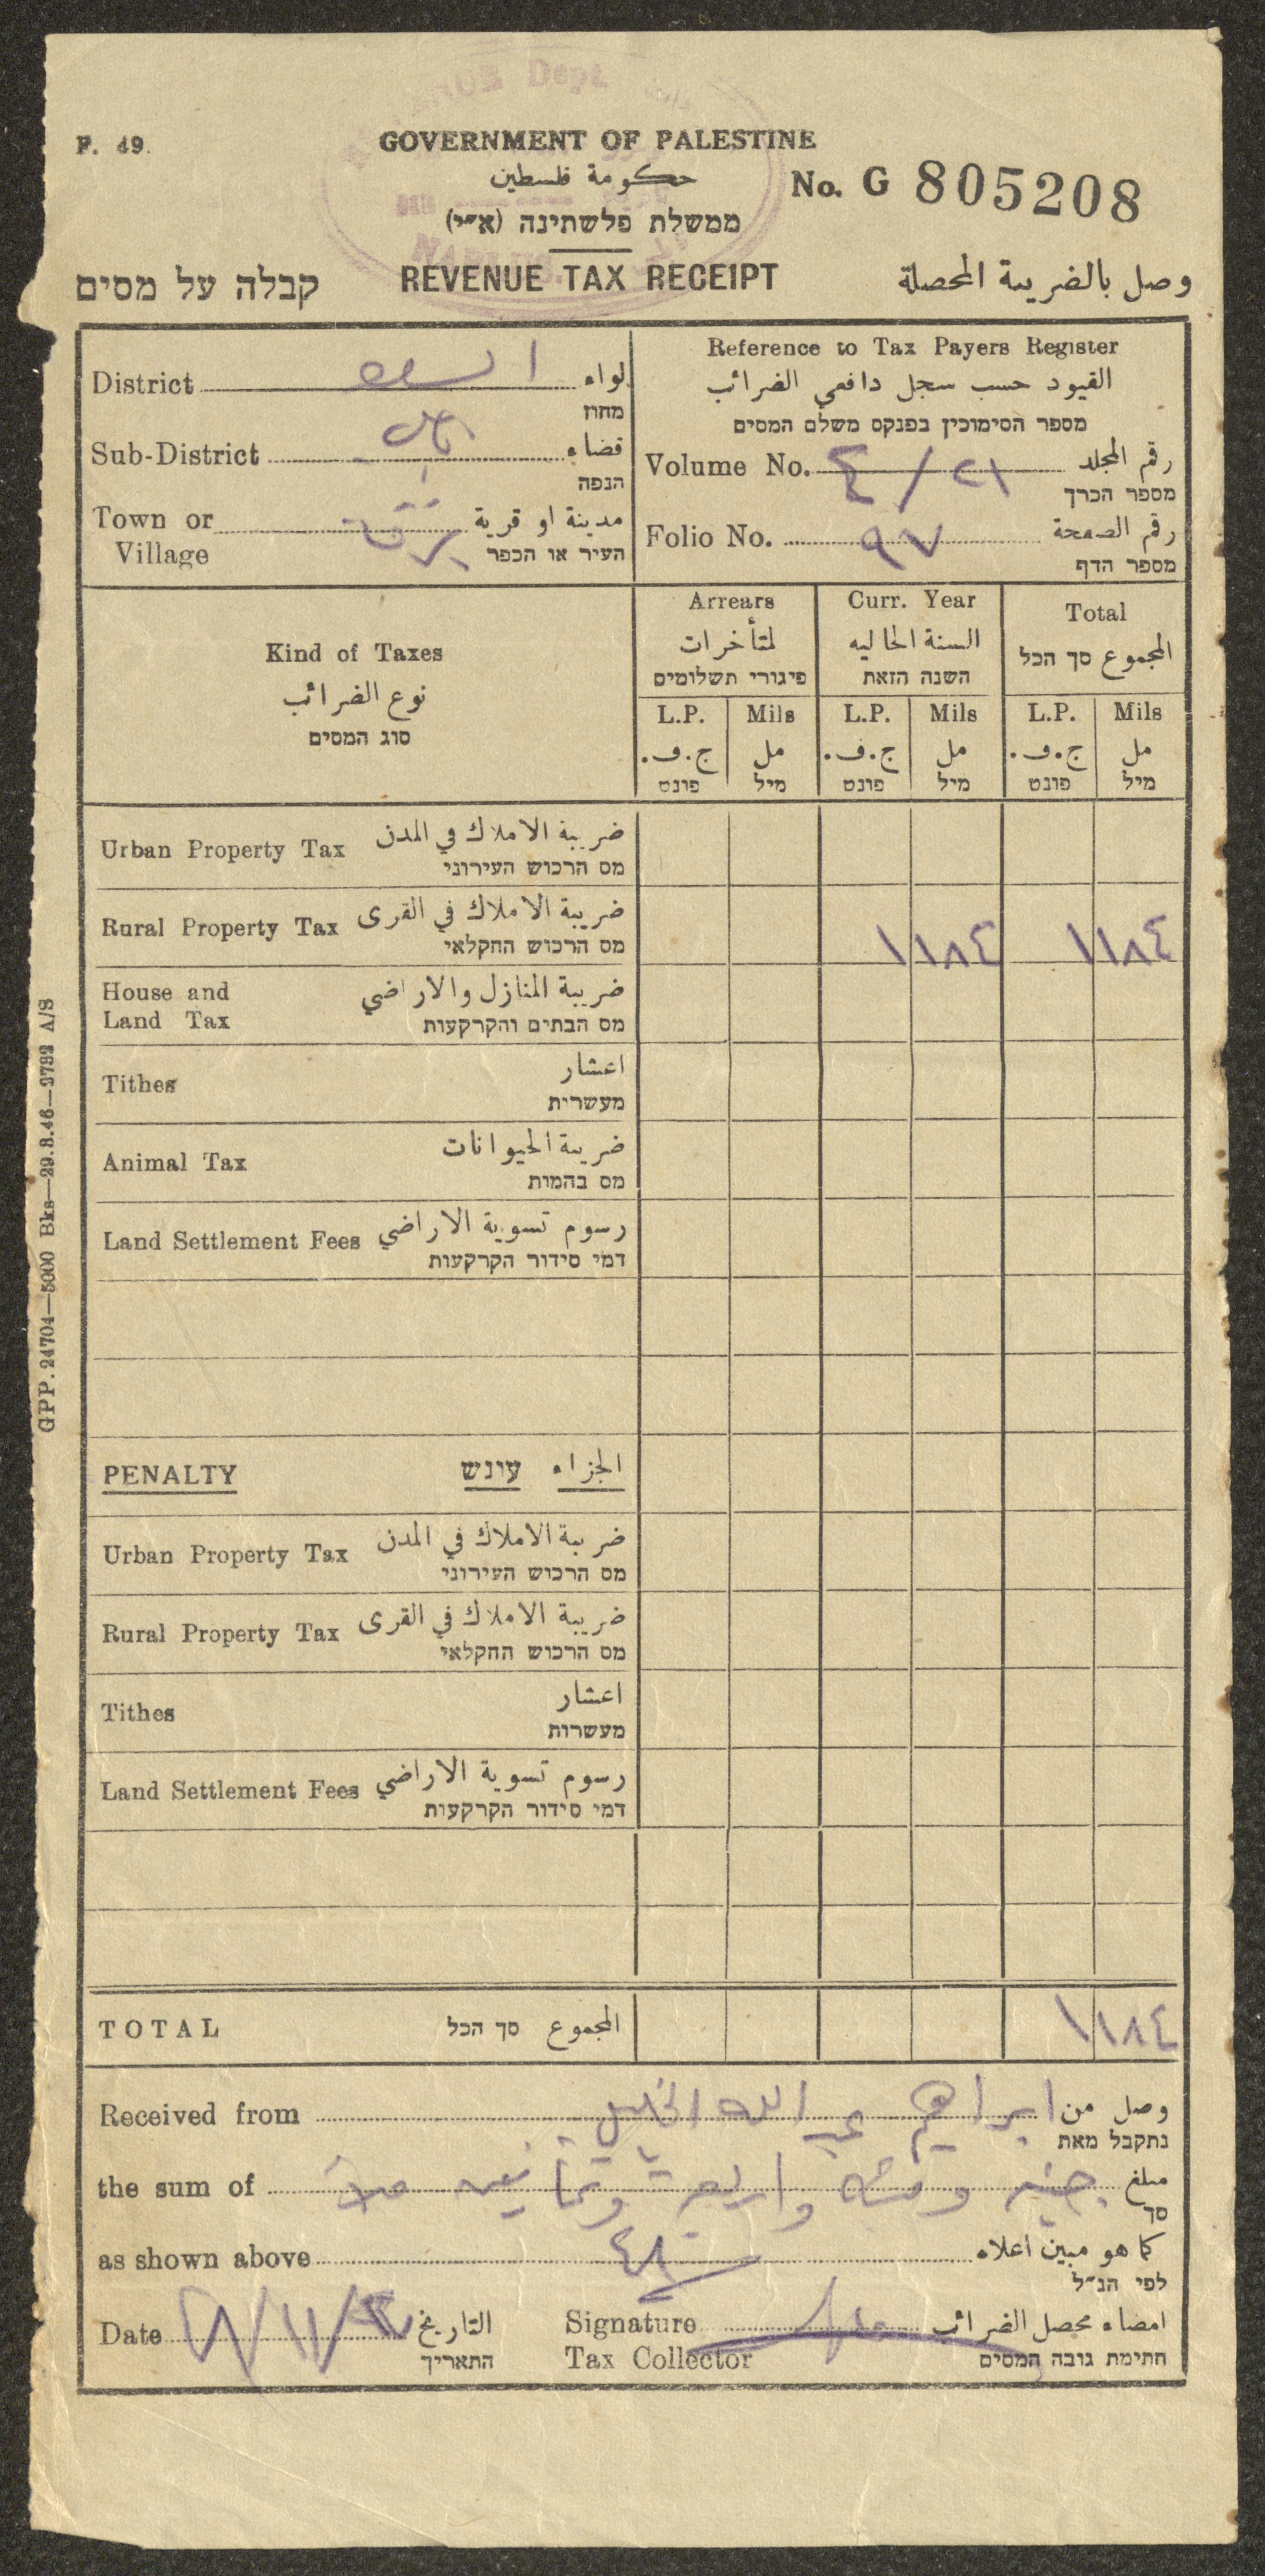 F. 49.
GOVERNMENT OF PALESTINE
حكومة فلسطين
No. G 805208
ממשלת פלשתינה (א״י)
קבלה על מסים REVENUE TAX RECEIPT وصل بالضريبة المحصلة
District لواء
מחוז
Sub-District قضاء
הנפה
Town or برقة مدينة او قرية
Village העיר או הכפר
Reference to Tax Payers Register
القيود حسب سجل دافعي الضرائب
מספר הסימוכין בפנקס משלם המסים
Volume No. ٤/٢١ رقم المجلد
מספר הכרך
Folio No. ٩٧ رقم الصفحة
מספר הדף
Kind of Taxes
نوع الضرائب
סוג המסים
Arrears Curr. Year Total
لمتأخرات السنة الحاليه المجموع סך הכל
פיגורי תשלומים השנה הזאת
L.P. Mils L.P. Mils L.P. Mils
ج.ف. مل ج.ف. مل ج.ف. مل
פונט מיל פונט מיל פונט מיל
Urban Property Tax ضريبة الاملاك في المدن
מס הרכוש העירוני
Rural Property Tax ضريبة الاملاك في القرى ١١٨٤ ١١٨٤
מס הרכוש החקלאי
House and ضريبة المنازل والاراضي
Land Tax מס הבתים והקרקעות
Tithes اعشار
מעשרית
Animal Tax ضريبة الحيوانات
מס בהמות
Land Settlement Fees رسوم تسوية الاراضي
דמי סידור הקרקעות
PENALTY עונש الجزاء
Urban Property Tax ضريبة الاملاك في المدن
מס הרכוש העירוני
Rural Property Tax ضريبة الاملاك في القرى
מס הרכוש החקלאי
Tithes اعشار
מעשרות
Land Settlement Fees رسوم تسوية الاراضي
דמי סידור הקרקעות
TOTAL סך הכל المجموع ١١٨٤
Received from ابراهيم عبد الله الخليل وصل من
נתקבל מאת
the sum of جنيه ومئة واربعة وثمانين ملا مبلغ
סך
as shown above كما هو مبين اعلاه
לפי הנ״ל
Date التاريخ Signature امضاء محصل الضرائب
התאריך Tax Collector חתימת גובה המסים
GPP. 24704—5000 Bks—29.8.46—3792 A/S